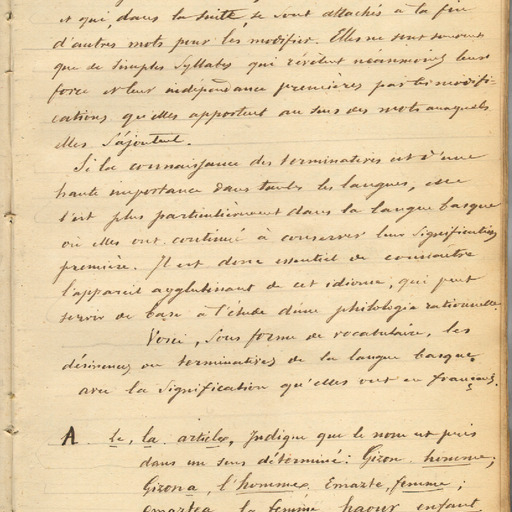 et qui, dans la suite, se sont attachés à la fin
d'autres mots pour les modifier. Elles ne sont souvent
que de simples syllabes qui révèlent néanmoins leur
force et leur indépendance premières par les modifi-
cations qu'elles apportent au sens des mots auxquels
elles s'ajoutent.
Si la connaissance des terminatives est d'une
haute importance dans toutes les langues, elle
l'est plus particulièrement dans la langue basque
où elles ont continué à conserver leur signification
première. Il est donc essentiel de connaître
l'appareil agglutinant de cet idiome, qui peut
servir de base à l'étude d'une philologie rationnelle.
Voici, sous forme de vocabulaire, les
désinences ou terminatives de la langue basque
avec la signification qu'elles ont en français.
A le, la article, Indique que le nom est pris
dans un sens déterminé: Gizon homme;
Gizona, l'homme. Emazte, femme;
emaztea la femme haour enfant